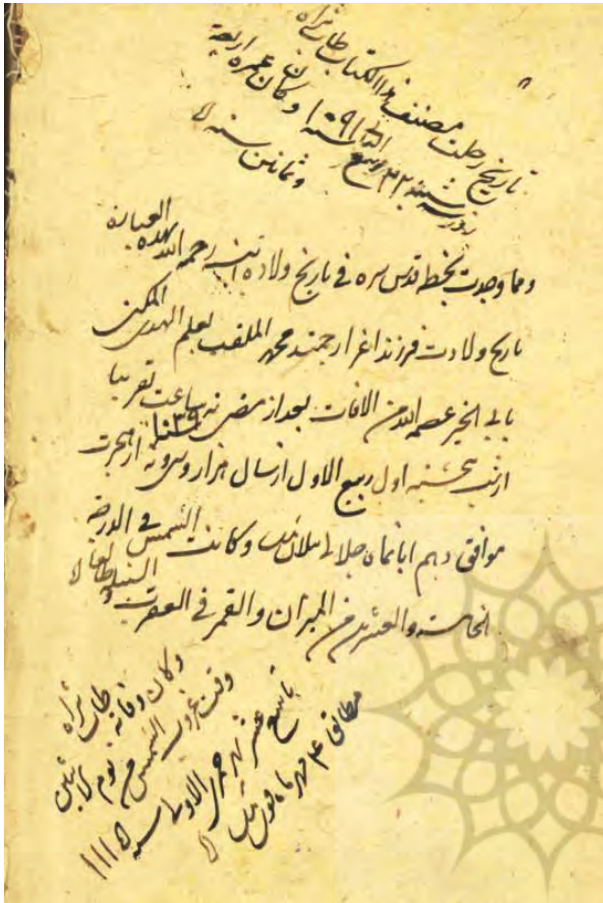 تاریخ رحلت مصنف هذا الکتاب طاب ثراه
روز سه شنبه ۲۲ ربیع الثانی سنه ۱۰۹۱ و کان عمره اربعة
و ثمانین سنه
و مما وجدت بخطه قدس سره فی تاریخ ولادة ابنه رحمه الله هذه العبارة
تاریخ ولادت فرزند اغر ارجمند محمد الملقب بعلم الهدی المکنی
بابی الخیر عصمه الله من الافات بعد از مضی نه ساعت تقریبا
از شب پنجشنبه اول ربیع الاول از سال هزار و سی و نه ۱۰۳۹ از هجرت
موافق دهم ابانماه جلالی و کانت الشمس فی الدرجة
الخامسة و العشرین من المیزان و القمر فی العقرب و الطالع السنبلة
و کان وفاته طاب ثراه
وقت غروب الشمس من یوم الاثنین
تاسع عشر شهر جمدی الاولی سنه ۱۱۱۵
مطابق ۴ مهرماه